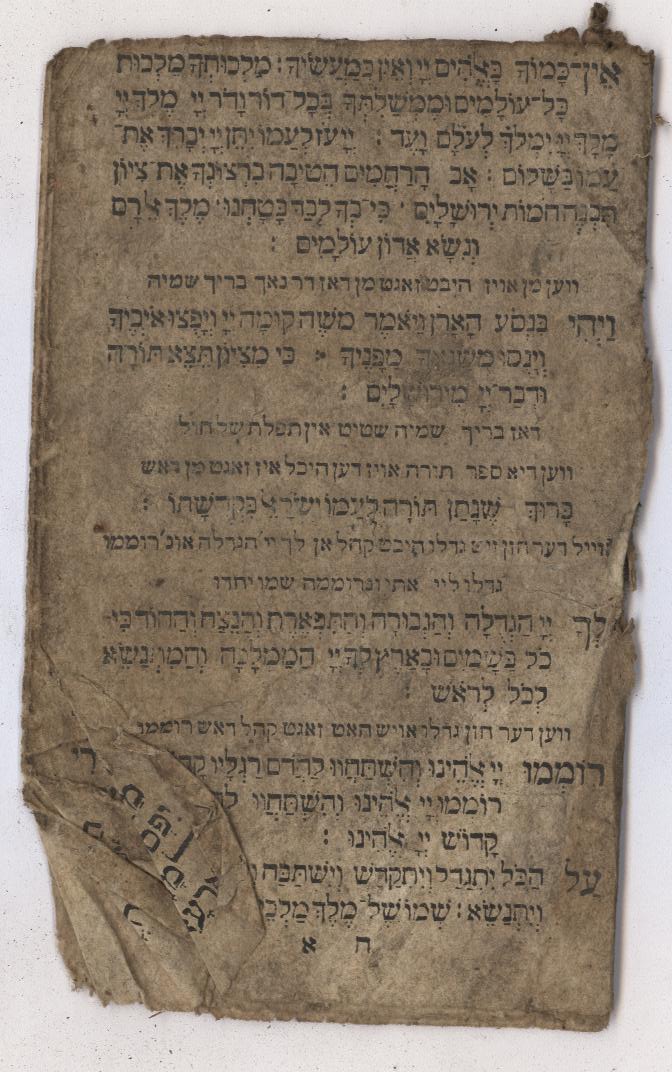 אֵין־כָּמוֹךָ בָאֱלֹהִים יְיָ וְאֵין כְּמַעֲשֶׂיךָ : מַלְכוּתְךָ מַלְכוּת
כָּל־עוֹלָמִים וּמֶמְשַׁלְתְּךָ בְּכָל־דּוֹר וָדֹר יְיָ מֶלֶךְ יְיָ
מָלָךְ יְיָ יִמְלֹךְ לְעֹלָם וָעֶד : יְיָ עֹז לְעַמּוֹ יִתֵּן יְיָ יְבָרֵךְ אֶת־
עַמּוֹ בַשָּׁלוֹם : אַב הָרַחֲמִים הֵטִיבָה בִרְצוֹנְךָ אֶת־צִיּוֹן
תִּבְנֶה חוֹמוֹת יְרוּשָׁלָיִם ׃ כִּי־בְךָ לְבַד בָּטָחְנוּ מֶלֶךְ אֵל רָם
וְנִשָּׂא אֲדוֹן עוֹלָמִים :
ווען מן אויז היבט זאגט מן דאן דר נאך בריך שמיה
וַיְהִי בִּנְסֹעַ הָאָרֹן וַיֹּאמֶר משֶׁה קוּמָה יְיָ וְיָפֻצוּ אֹיְבֶיךָ
וְיָנֻסוּ מְשַׂנְאֶיךָ מִפָּנֶיךָ : כִּי מִצִּיּוֹן תֵּצֵא תוֹרָה
וּדְבַר־יְיָ מִירוּשָׁלָיִם :
דאן בריך שמיה שטיט אין תפלת של חול
ווען דיא ספר תורה אויז דען היכל איז זאגט מן דאש
בָּרוּךְ שֶׁנָּתַן תּוֹרָה לְעַמּוֹ יִשְׂרָאֵל בִּקְדֻשָּׁתוֹ :
ווייל דער חזן גדלו היבט קהל אן לך יי הגדלה אונ' רוממו
גדלו ליי אתי ונרוממה שמו יחדו
לְךָ יְיָ הַגְּדֻלָּה וְהַגְּבוּרָה וְהַתִּפְאֶרֶת וְהַנֵּצַח וְהַהוֹד כִּי־
כֹל בַּשָּׁמַיִם וּבָאָרֶץ לְךָ יְיָ הַמַּמְלָכָה וְהַמִּתְנַשֵּׂא
לְכֹל לְרֹאשׁ :
ווען דער חזן גדלו אויש האט זאגט קהל דאש רוממו
רוֹמְמוּ יְיָ אֱלֹהֵינוּ וְהִשְׁתַּחֲווּ לַהֲדֹם רַגְלָיו
רוֹמְמוּ יְיָ אֱלֹהֵינוּ וְהִשְׁתַּחֲווּ
קָדוֹשׁ יְיָ אֱלֹהֵינוּ :
עַל הַכֹּל יִתְגַּדַּל וְיִתְקַדֵּשׁ וְיִשְׁתַּבַּח
וְיִתְנַשֵּׂא : שְׁמוֹ שֶׁל־מֶלֶךְ מַלְכֵי
ה א